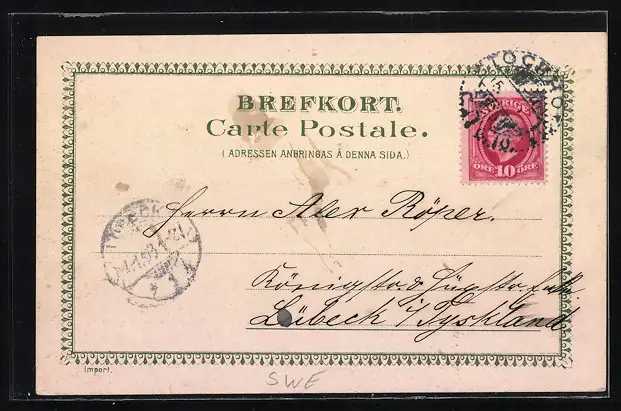 BREFKORT.
Carte Postale.
(ADRESSEN ANBRINGAS Å DENNA SIDA.)
SVERIGE
ÖRE 10 ÖRE
Herrn Alex Röper.
Königstr.
Lübeck i/Tyskland
Import.
SWE